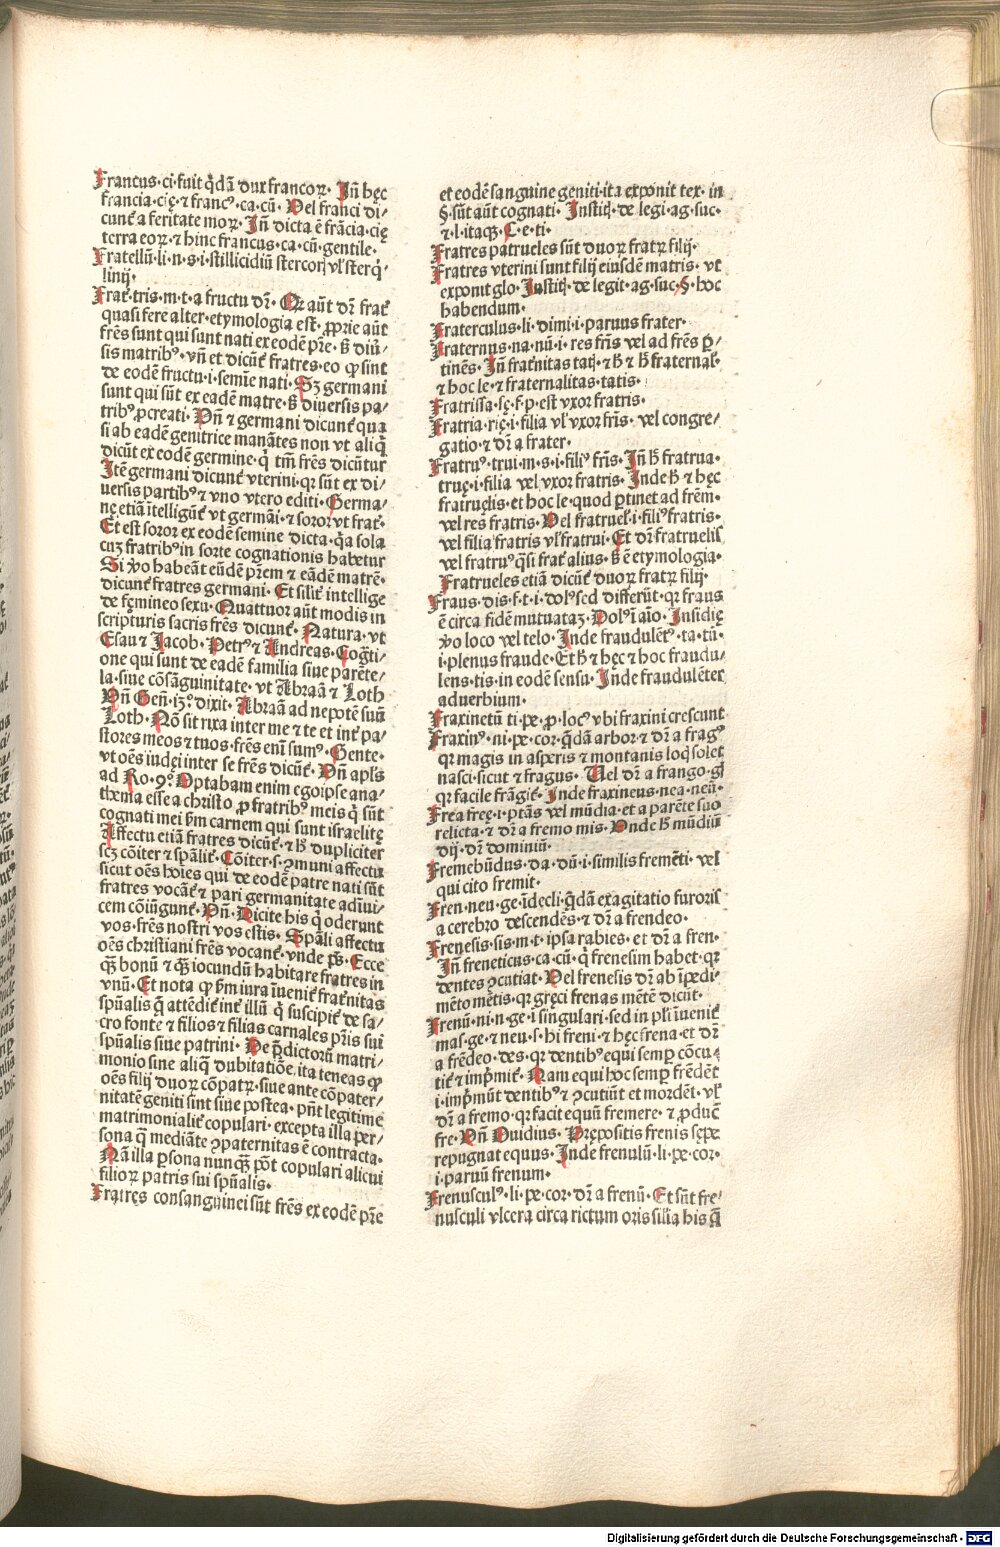 Francus·ci·fuit q̃dã dux francoꝝ· Jñ hęc
francia·cię·⁊ francꝰ·ca·cũ· Vel franci di/
cunť a feritate moꝝ· Jñ dicta ẽ frãcia·cię
terra eoꝝ·⁊ hinc francus·ca·cũ·gentile·
Fratellũ·li·n·s·i·stillicidiũ stercoꝝ vľ sterq̇/
linij·
Frať·tris·m·t·a fructu dr̃· Qꝛ aũt dr̃ frať
quasi fere alter·etymologia est· ꝓprie aũt
fr̃es sunt qui sunt nati ex eodẽ pr̃e· s̃ diũ/
sis matribꝰ· vñ et dicunť fratres·eo ꝙ sint
de eodẽ fructu·i·semĩe nati· Sꝫ germani
sunt qui sũt ex eadẽ matre·s̃ diuersis pa/
tribꝰ ꝓcreati· Vñ ⁊ germani dicunť qua
si ab eadẽ genitrice manãtes non vt aliq̇
dicũt ex eodẽ germine·q̇ tm̃ fr̃es dicũtur
Jtẽ germani dicunť vterini·qꝛ sũt ex di/
uersis partibꝰ ⁊ vno vtero editi· Germa/
nę etiã ĩtelligũť vt germãi·⁊ soror vt frať·
Et est soror ex eodẽ semine dicta·q̃a sola
cuꝫ fratribꝰ in sorte cognationis habetur
Si ꝟo habeãt eũdẽ pr̃em ⁊ eãdẽ matrẽ·
dicunť fratres germani· Et siliť intellige
de fęmineo sexu· Quattuor aũt modis in
scripturis sacris fr̃es dicunť· Natura·vt
Esau ⁊ Jacob· Petrꝰ ⁊ Andreas· Cogti/
one qui sunt de eadẽ familia siue parẽte/
la·siue cõsãguinitate·vt Abraã ⁊ Loth
Vñ Geñ·13·° dixit· Abraã ad nepotẽ suũ
Loth· Nõ sit rixa inter me ⁊ te et inť pa/
stores meos ⁊ tuos·fr̃es enĩ sumꝰ· Gente·
vt oẽs iudei inter se fr̃es dicũť· Vñ apľs
ad Ro·9·° Optabam enim ego ipse ana/
thema esse a christo ꝓ fratribꝰ meis q̇ sũt
cognati mei s̃m carnem qui sunt israelitę
Affectu etiã fratres dicũť·⁊ h̃ dupliciter
scꝫ cõiter ⁊ spãliť· Cõiter·s·ꝯmuni affectu
sicut oẽs hoĩes qui de eodẽ patre nati sũt
fratres vocãť ⁊ pari germanitate adĩui/
cem cõiũgunť· Vñ· Dicite his q̇ oderunt
vos·fr̃es nostri vos estis· Spãli affectu
oẽs christiani fr̃es vocanť·vnde ps̃· Ecce
ꝙ̃ bonũ ⁊ ꝙ̃ iocundũ habitare fratres in
vnũ· Et nota ꝙ s̃m iura ĩueniť fraťnitas
spũalis q̃ attẽdiť inť illũ q̇ suscipiť de sa/
cro fonte ⁊ filios ⁊ filias carnales pr̃is sui
spũalis siue patrini· De p̃dictoꝝ matri/
monio sine aliq̃ dubitatiõe·ita teneas ꝙ
oẽs filij duoꝝ cõpatꝝ·siue ante cõpater/
nitatẽ geniti sint siue postea·pñt legitime
matrimonialiť copulari·excepta illa per/
sona q̃ mediãte ꝯpaternitas ẽ contracta·
Nã illa ꝑsona nunꝙ̃ põt copulari alicui
filioꝝ patris sui spũalis·
Fratres consanguinei sũt fr̃es ex eodẽ pr̃e
et eodẽ sanguine geniti·ita exponit tex· in
§·sũt aũt cognati· Jnstit̨·de legi·ag·suc·
⁊·l·itaqꝫ·C·e·ti·
Fratres patrueles sũt duoꝝ fratꝝ filij·
Fratres vterini sunt filij eiusdẽ matris· vt
exponit glo· Jnstit̨·de legit·ag·suc·§·hoc
habendum·
Fraterculus·li·dimi·i·paruus frater·
Fraternus·na·nũ·i·res fr̃is vel ad fr̃es ꝑ/
tinẽs· Jñ fraťnitas tat̨·⁊ h̃ ⁊ h̃ fraternaľ·
⁊ hoc le·⁊ fraternalitas·tatis·
Fratrissa·sę·f·p·est vxor fratris·
Fratria·rię·i·filia vľ vxor fr̃is· vel congre/
gatio·⁊ dr̃ a frater·
Fratruꝰ·trui·m·s·i·filiꝰ fr̃is· Jñ h̃ fratrua·
truę·i·filia vel vxor fratris· Jnde h̃ ⁊ hęc
fratruelis·et hoc le·quod ꝑtinet ad fr̃em·
vel res fratris· Vel fratrueľ·i·filiꝰ fratris·
vel filia fratris vľ fratrui· Et dr̃ fratruelis
vel fratruꝰ q̃si frať alius· s̃ ẽ etymologia·
Fratrueles etiã dicũť duoꝝ fratꝝ filij·
Fraus·dis·f·t·i·dolꝰ sed differũt·qꝛ fraus
ẽ circa fidẽ mutuataꝫ· Dolꝰ ĩ aĩo· Jnsidię
ꝟo loco vel telo· Jnde fraudulẽtꝰ·ta·tũ·
i·plenus fraude· Et h̃ ⁊ hęc ⁊ hoc fraudu/
lens·tis·in eodẽ sensu· Jnde fraudulẽter
aduerbium·
Fraxinetũ ti·pe·ꝓ·locꝰ vbi fraxini crescunt
Fraxinꝰ·ni·pe·cor·q̃dã arbor ⁊ dr̃ a fragꝰ
qꝛ magis in asperis ⁊ montanis loq̇ solet
nasci·sicut ⁊ fragus· Uel dr̃ a frango·gl
qꝛ facile frãgiť· Jnde fraxineus·nea·neũ·
Frea freę·i·ptãs vel mũdia·et a parẽte suo
relicta·⁊ dr̃ a fremo mis· Vnde h̃ mũdiũ
dij·dr̃ dominiũ·
Fremebũdus·da·dũ·i·similis fremẽti· vel
qui cito fremit·
Fren·neu·ge·ĩdecli·q̃dã exagitatio furoris
a cerebro descendẽs·⁊ dr̃ a frendeo·
Frenesis·sis·m·t·ipsa rabies· et dr̃ a fren·
Jñ freneticus·ca·cũ·q̇ frenesim habet·qꝛ
dentes ꝯcutiat· Vel frenesis dr̃ ab ĩpedi/
mẽto mẽtis·qꝛ gręci frenas mẽtẽ dicũt·
Frenũ·ni·n·ge·i singulari·sed in pľi ĩueniť
mas·ge·⁊ neu·s·hi freni·⁊ hęc frena·et dr̃
a frẽdeo·des·qꝛ dentibꝰ equi semꝑ cõcu/
tiť ⁊ imp̃miť· Nam equi hoc semꝑ frẽdẽt
i·imp̃mũt dentibꝰ ⁊ ꝯcutiũt et mordẽt· vľ
dr̃ a fremo·qꝛ facit equũ fremere·⁊ ꝓducť
fre· Vñ Ouidius· Prępositis frenis sępe
repugnat equus· Jnde frenulũ·li·pe·cor·
i·paruũ frenum·
Frenusculꝰ·li·pe·cor·dr̃ a frenũ· Et sũt fre/
nusculi vlcera circa rictum oris silia his q̃
Digitalisierung gefördert durch die Deutsche Forschungsgemeinschaft - DFG